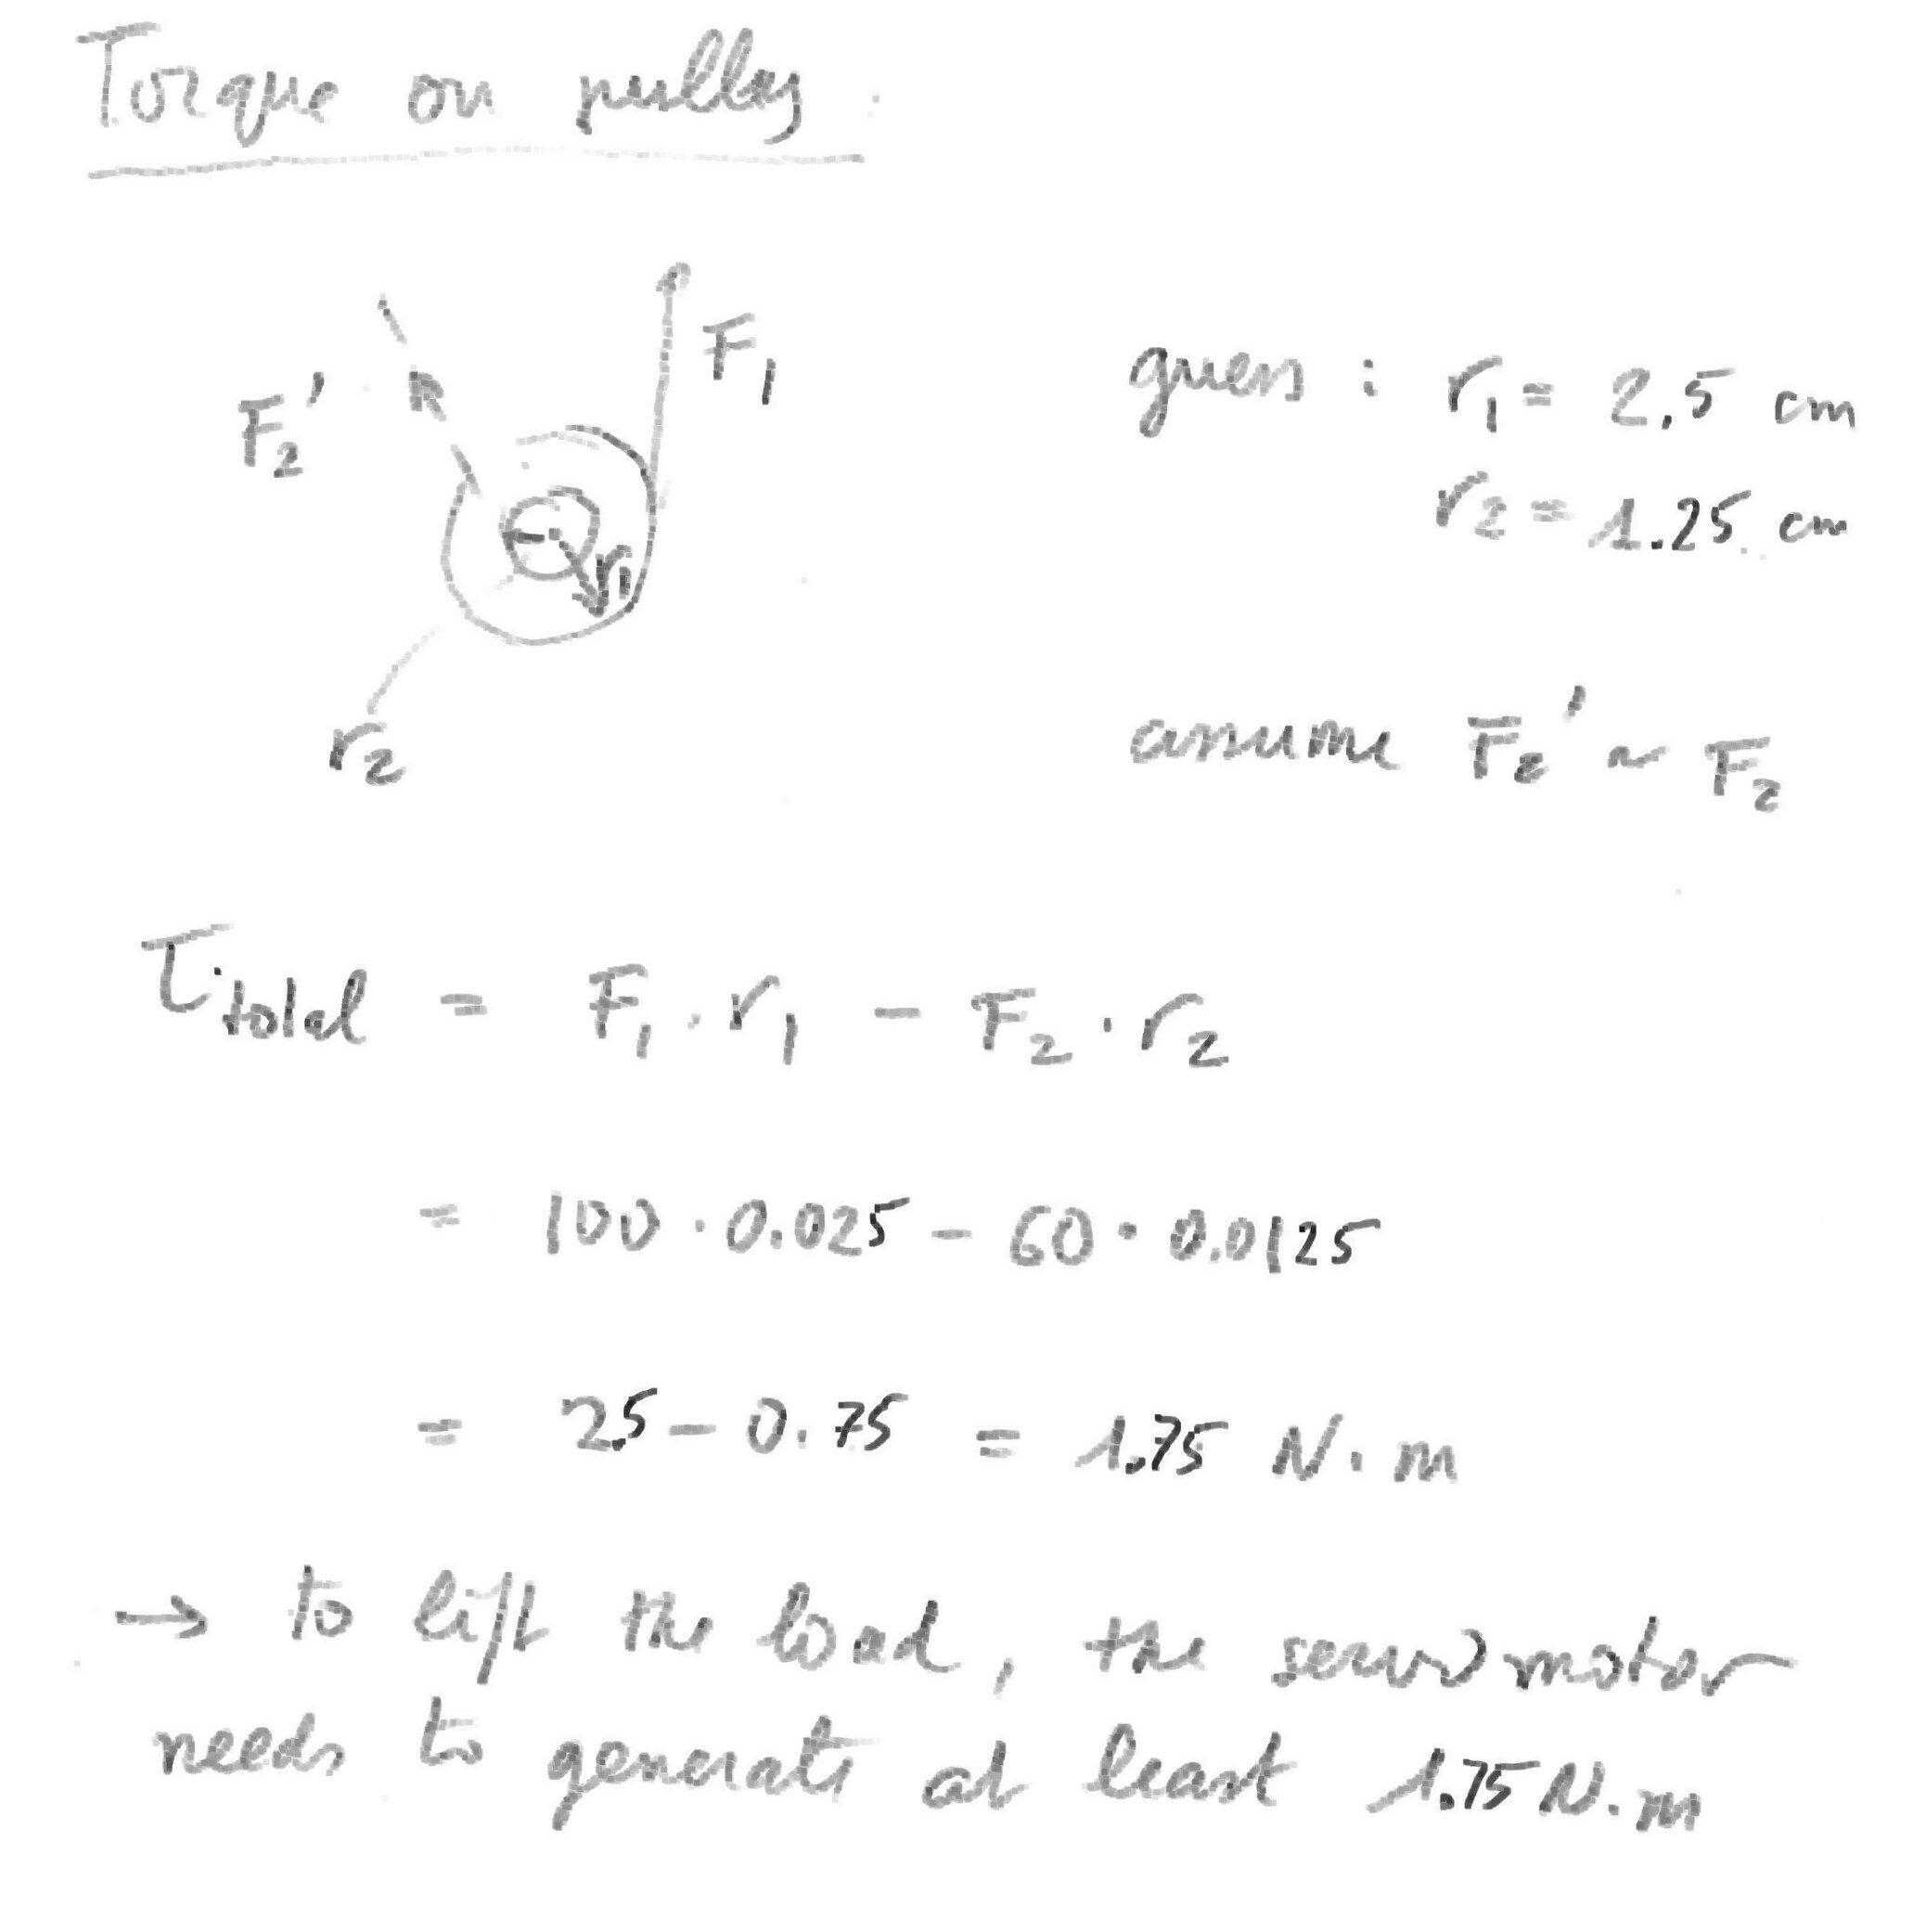 Torque on pulley
F2'
F1
r1
r2
guess : r1 = 2,5 cm
r2 = 1.25 cm
assume F2' ~ F2
τtotal = F1 . r1 - F2 . r2
= 100 . 0.025 - 60 . 0.0125
= 25 - 0.75 = 1.75 N.m
→ to lift the load, the servomotor
needs to generate at least 1.75 N.m